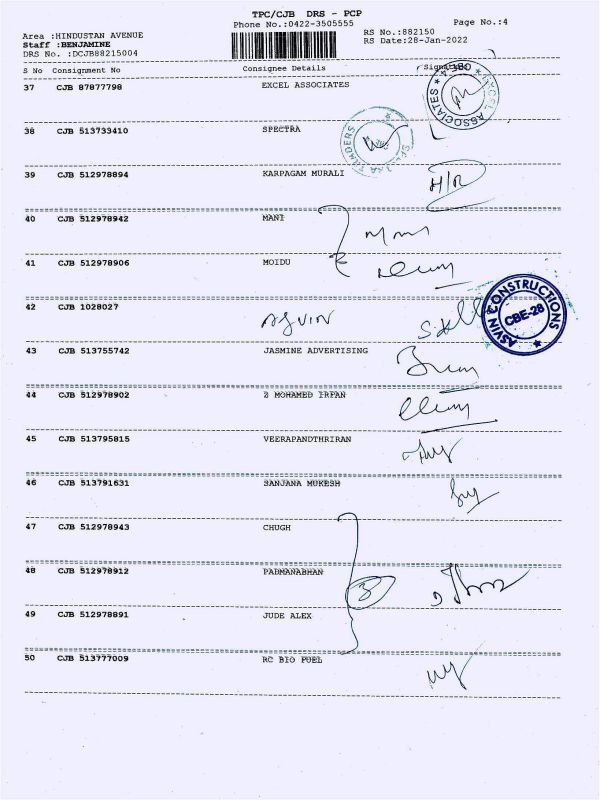 TPC/CJB DRS - PCP
Phone No.:0422-3505555
Page No.:4
Area :HINDUSTAN AVENUE
RS No.:882150
Staff :BENJAMINE
RS Date:28-Jan-2022
DRS No. :DCJB88215004
S No Consignment No Consignee Details
37 CJB 87877798 EXCEL ASSOCIATES
ASSOCIATES
38 CJB 513733410 SPECTRA
39 CJB 512978894 KARPAGAM MURALI
H/R
40 CJB 512978942 MANI
Mani
41 CJB 512978906 MOIDU
42 CJB 1028027 ASVIN
ASVIN CONSTRUCTIONS
CBE-28
43 CJB 513755742 JASMINE ADVERTISING
44 CJB 512978902 Z MOHAMED IRFAN
45 CJB 513795815 VEERAPANDTHRIRAN
46 CJB 513791631 SANJANA MUKESH
47 CJB 512978943 CHUGH
48 CJB 512978912 PADMANABHAN
3
49 CJB 512978891 JUDE ALEX
50 CJB 513777009 RC BIO FUEL